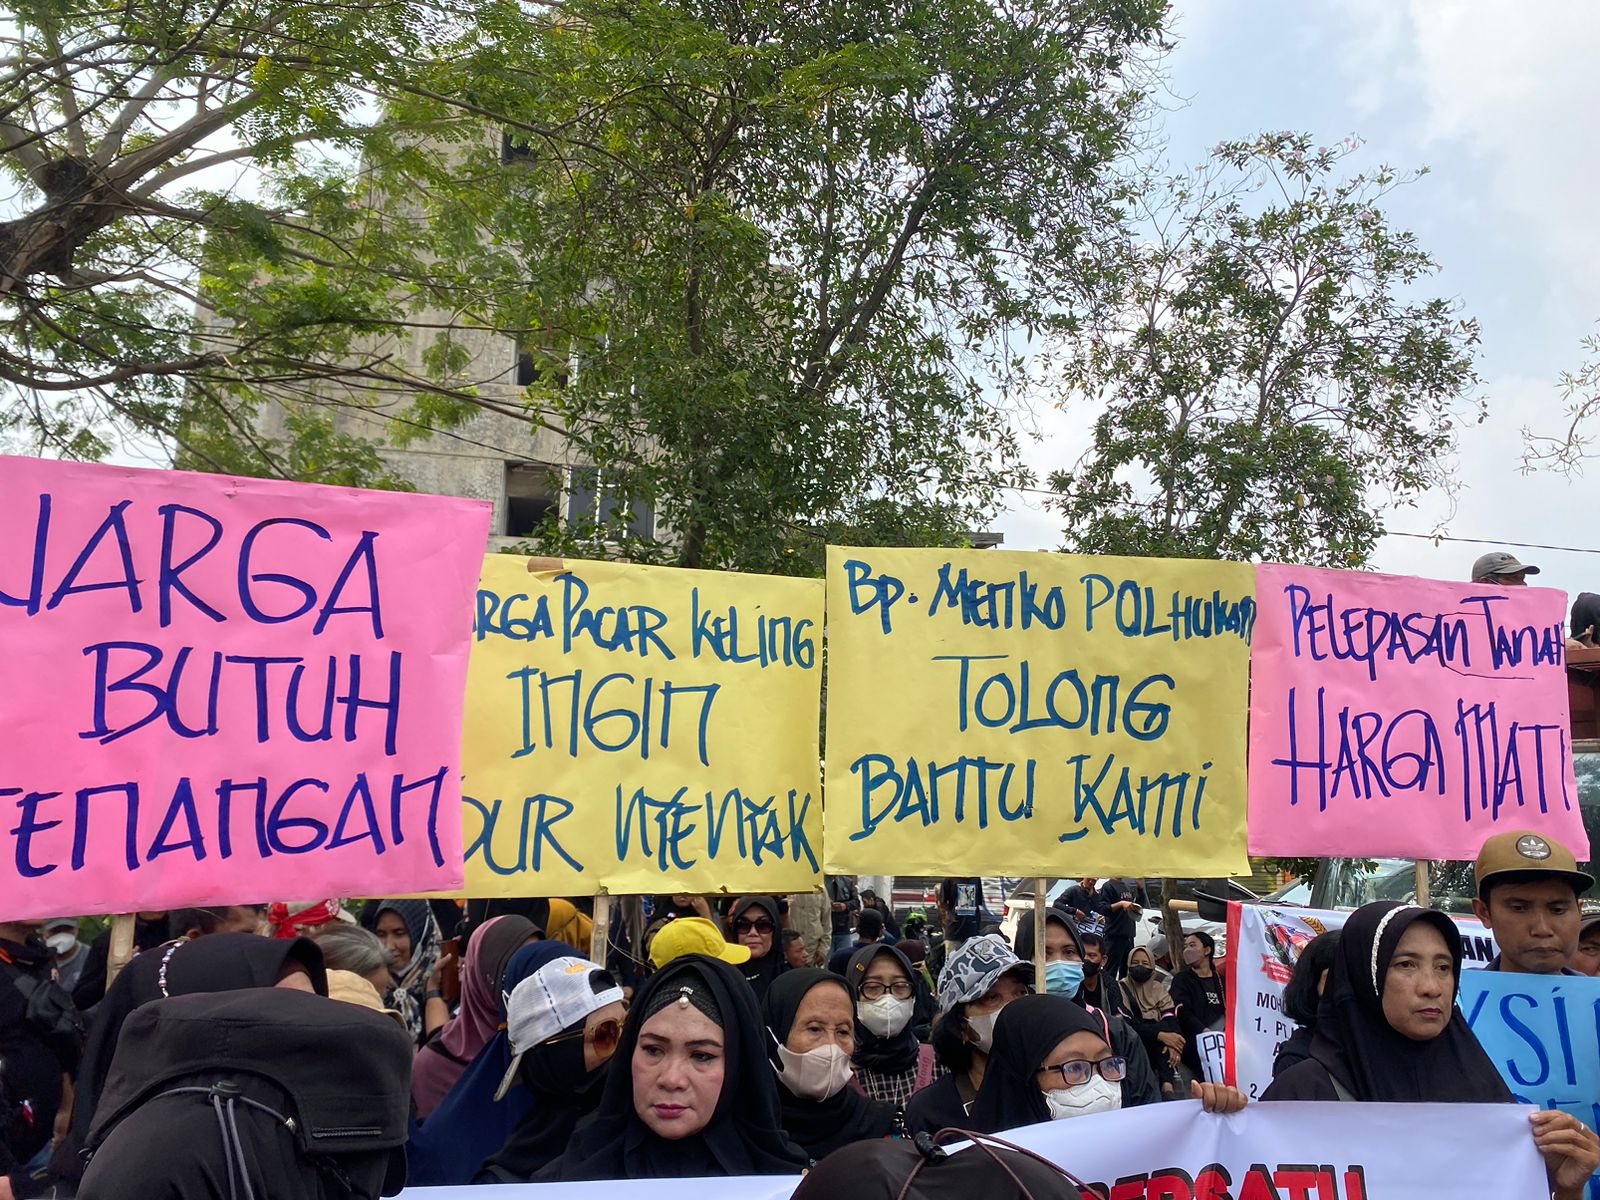 WARGA
BUTUH
TENANGAN
WARGA PACAR KELING
INGIN
NYENYAK
BP. MENKO POLHUKAM
TOLONG
BANTU KAMI
PELEPASAN TANAH
HARGA MATI
MOH
1. PT
2.
BERSATU